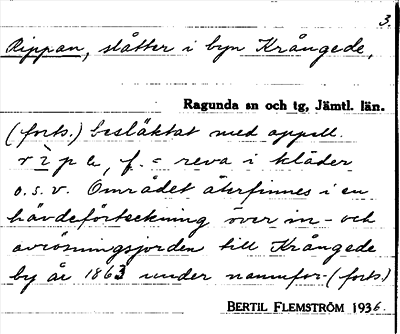 3.
Rippan, slåtter i byn Krångede,
Ragunda sn och tg, Jämtl. län.
(forts.) besläktat med appell.
rìpa, f. = reva i kläder
o.s.v. Området återfinnes i en
hävdeförteckning över in- och
avrösningsjorden till Krångede
by år 1863 under namnfor-(forts)
BERTIL FLEMSTRÖM 1936.